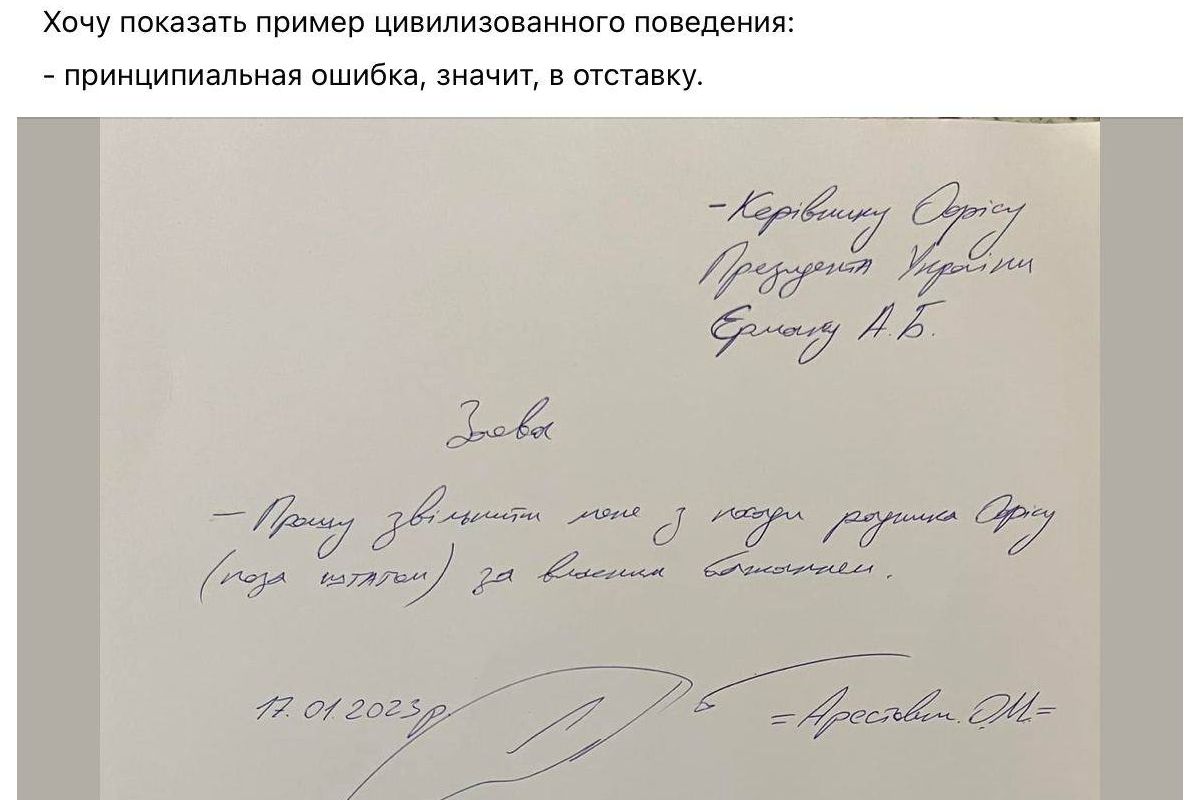 Хочу показать пример цивилизованного поведения:
- принципиальная ошибка, значит, в отставку.
- Керівнику Офісу
Президента України
Єрмаку А.Б.
Заява
- Прошу звільнити мене з посади радника Офісу
(поза штатом) за власним бажанням.
17.01.2023р.
=Арестович О.М.=